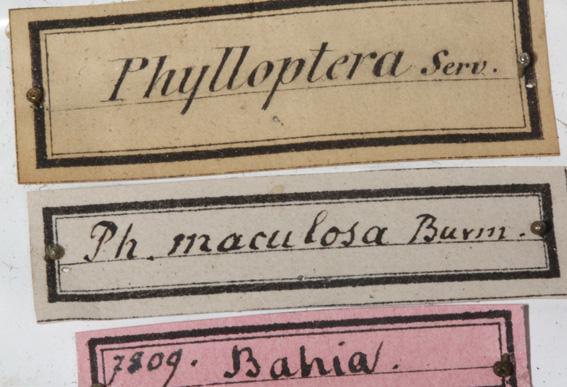 Phylloptera Serv.
Ph. maculosa Burm.
7809. Bahia.